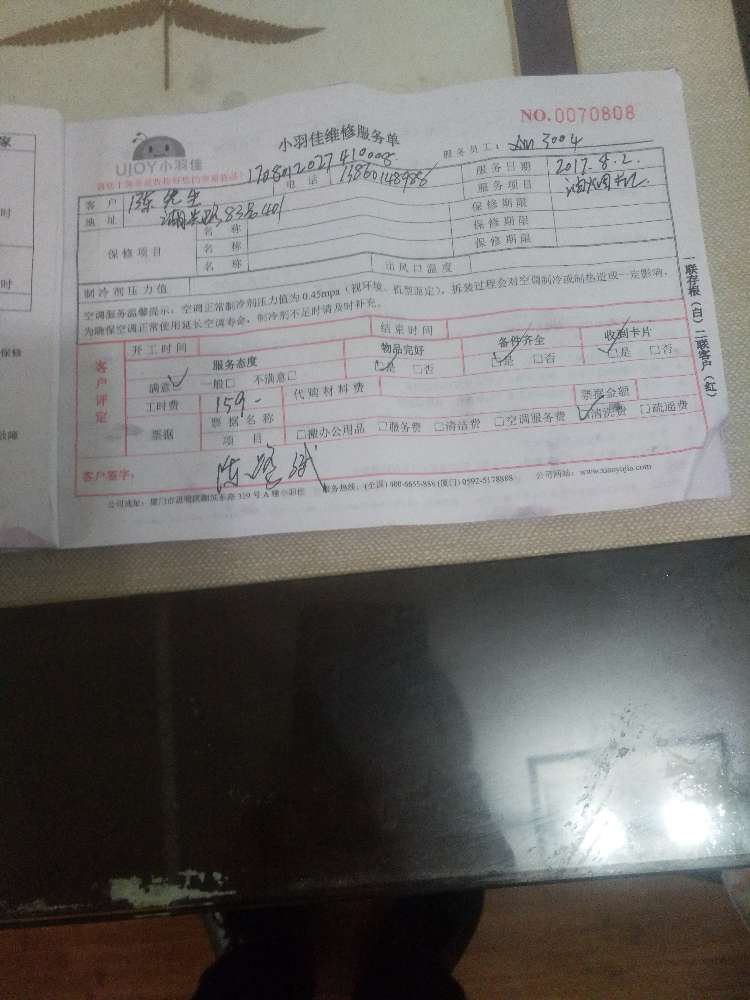 NO.0070808
UJOY小羽佳
小羽佳维修服务单
服务员工： 3004
1708012027410008
客户 陈先生 电话 13860148986 服务日期 2017.8.2.
地址 83号401 服务项目 油烟机
保修项目 名称 保修期限
名称 保修期限
名称 保修期限
制冷剂压力值 出风口温度
空调服务温馨提示：空调正常制冷剂压力值为0.45mpa（视环境、机型而定），拆装过程会对空调制冷或制热造成一定影响，
为确保空调正常使用延长空调寿命，制冷剂不足时请及时补充。
客户评定
开工时间 结束时间
服务态度 物品完好 备件齐全 收到卡片
满意✓ 一般□ 不满意□ ☑是 □否 ☑是 □否 ☑是 □否
工时费 159- 代购材料费
票据 票据名称 票据金额
项目 □搬办公用品 □服务费 □清洁费 □空调服务费 ☑清洗费 □疏通费
客户签字：
公司地址：厦门市思明区湖滨东路319号A幢小羽佳 服务热线：(全国)400-6655-888 (厦门)0592-5178808 公司网站：www.xiaoyujia.com
一联存根（白）二联客户（红）
家
时
时
保修
故障